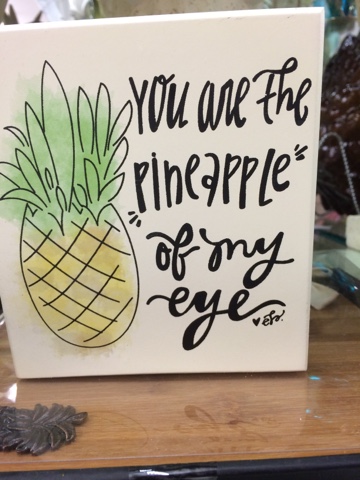 You are the
pineapple
of my
eye